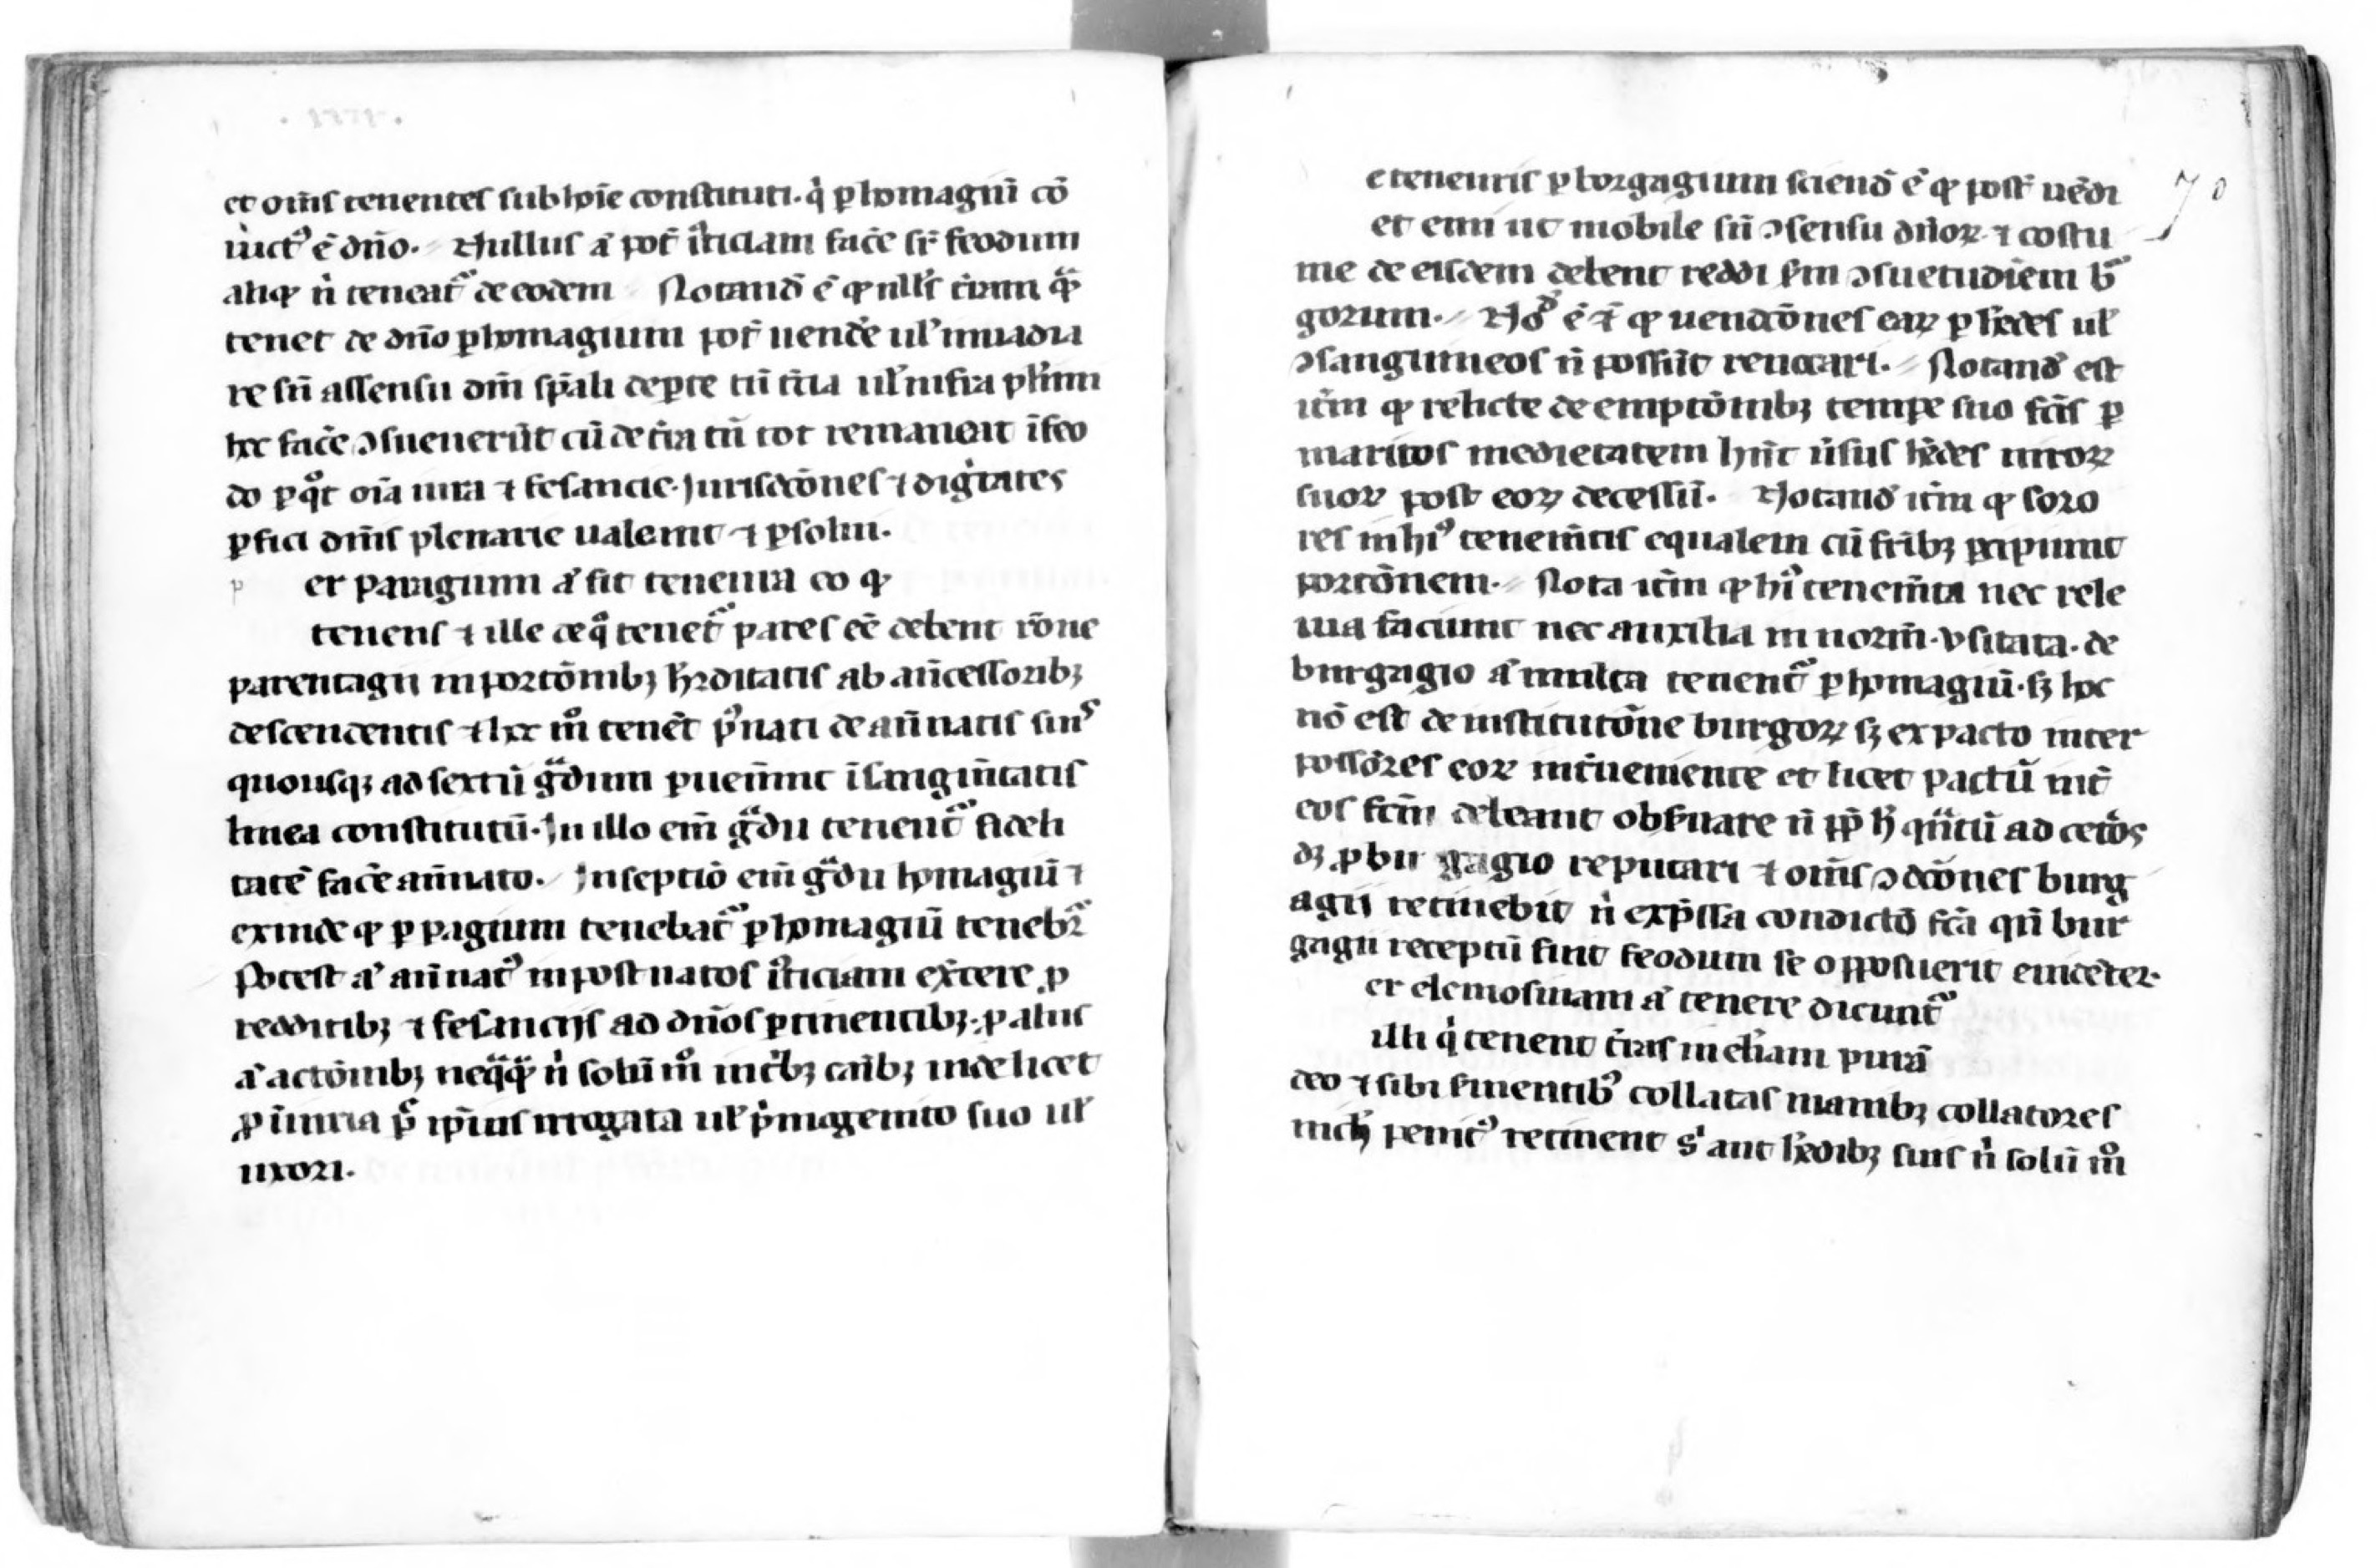 et om̄s tenentes sub hoīe constituti. q̇ ꝑ homagiū cō
iūctꝰ ē dn̄o. Nullus aͧ pot̄ iꝰticiam fac̄e sr̄ feodum
aliqͦ n̄ teneatᷣ de eodem Notand̄ ē qͦ nllꝰs tr̄am qᷓm
tenet de dn̄o ꝑ homagium pot̄ uend̄e ul' inuadia
re sn̄ assensu dn̄i sp̄ali
hoc fac̄e ꝯsueuerūt cū de tr̄a tn̄ tot remaneat ī feo
do ꝑ qͦd oīa iura ⁊ fesancie. Jurisdcōnes ⁊ dignitates
ꝑfici dn̄is plenarie ualeant ⁊ ꝑsolui.
er paragium aͧ fit teneura eo qͦ
tenens ⁊ ille de qͦ tenetᷣ pares eē debent rōne
parentagii in portōnibꝫ h̄editatis ab ancessoribꝫ
descendentis ⁊ hoc mͦ tenēt pͦnati de an̄natis suis
quousqꝫ ad sextū gͣdum ꝑueniunt ī sanguītatis
linea constitutū. In illo em̄ gͣdu tenentᷣ fideli
tatē fac̄e an̄nato. In septiō em̄ gͣdu homagiū ⁊
exinde qͦ ꝑ pagium tenebatᷣ ꝑ homagiū tenebrᷣ
Potest aͧ an̄natꝰ in post natos iꝰticiam ex̄cere ꝓ
redditibꝫ ⁊ fesanciis ad dn̄os ꝑtinentibꝫ. ꝓ aliis
aͧ actōnibꝫ neqͣqͣ n̄ solū mͦ in tr̄bꝫ caībꝫ indelicet
ꝓ iniuria pͥ ip̄ius irrogata ul' pͥmogenito suo ul'
uxori.
70
e teneuris ꝑ borgagium sciend̄ ē qͦ post̄ uēdi
et emi ut mobile sn̄ ꝯsensu dn̄oꝝ ⁊ costu
me de eisdem debent reddi sm̄ ꝯsuetudiēm bᷣ
gorum. Nōd ē ⁊ qͦ uendcōnes eaꝝ ꝑ h̄edes ul'
ꝯsanguineos n̄ possūt reuocari. Notand̄ est
itm̄ qͦ relicte de emptōnibꝫ tempe suo fc̄is ꝑ
maritos medietatem hn̄t ūsus h̄edes uiroꝝ
suoꝝ post eoꝝ decessū. Notand̄ itm̄ qͦ soro
res in hiꝰ tenem̄tis equalem cū fr̄ibꝫ ꝑcipiunt
portōnem. Nota itm̄ qͦ hiꝰ tenem̄ta nec rele
uia faciunt nec auxilia in norm̄. vsitata. de
burgagio aͧ multa tenentᷣ ꝑ homagiū. sꝫ hoc
nō est de institutōne burgoꝝ sꝫ ex pacto inter
possōres eoꝝ int̄ueniente et licet pactū int̄
eos fcm̄ debeant obs̄uare n̄ ꝓp̄ h̄ qn̄tū ad cet̄os
dꝫ ꝓ burgagio reputari ⁊ om̄s ꝯdcōnes burg
agii retinebit n̄ exp̄ssa condictō fc̄a qn̄ bur
gagii receptū sint feodum se opposuerit euicēter.
er elemosinam aͧ tenere dicuntᷣ
illi q̇ tenent tr̄as in el̄iam purā
deo ⁊ sibi s̄uientibꝰ collatas in manibꝫ collatores
nich̄ penitꝰ retinent sͥ aut h̄edibꝫ suis n̄ solū mͦ